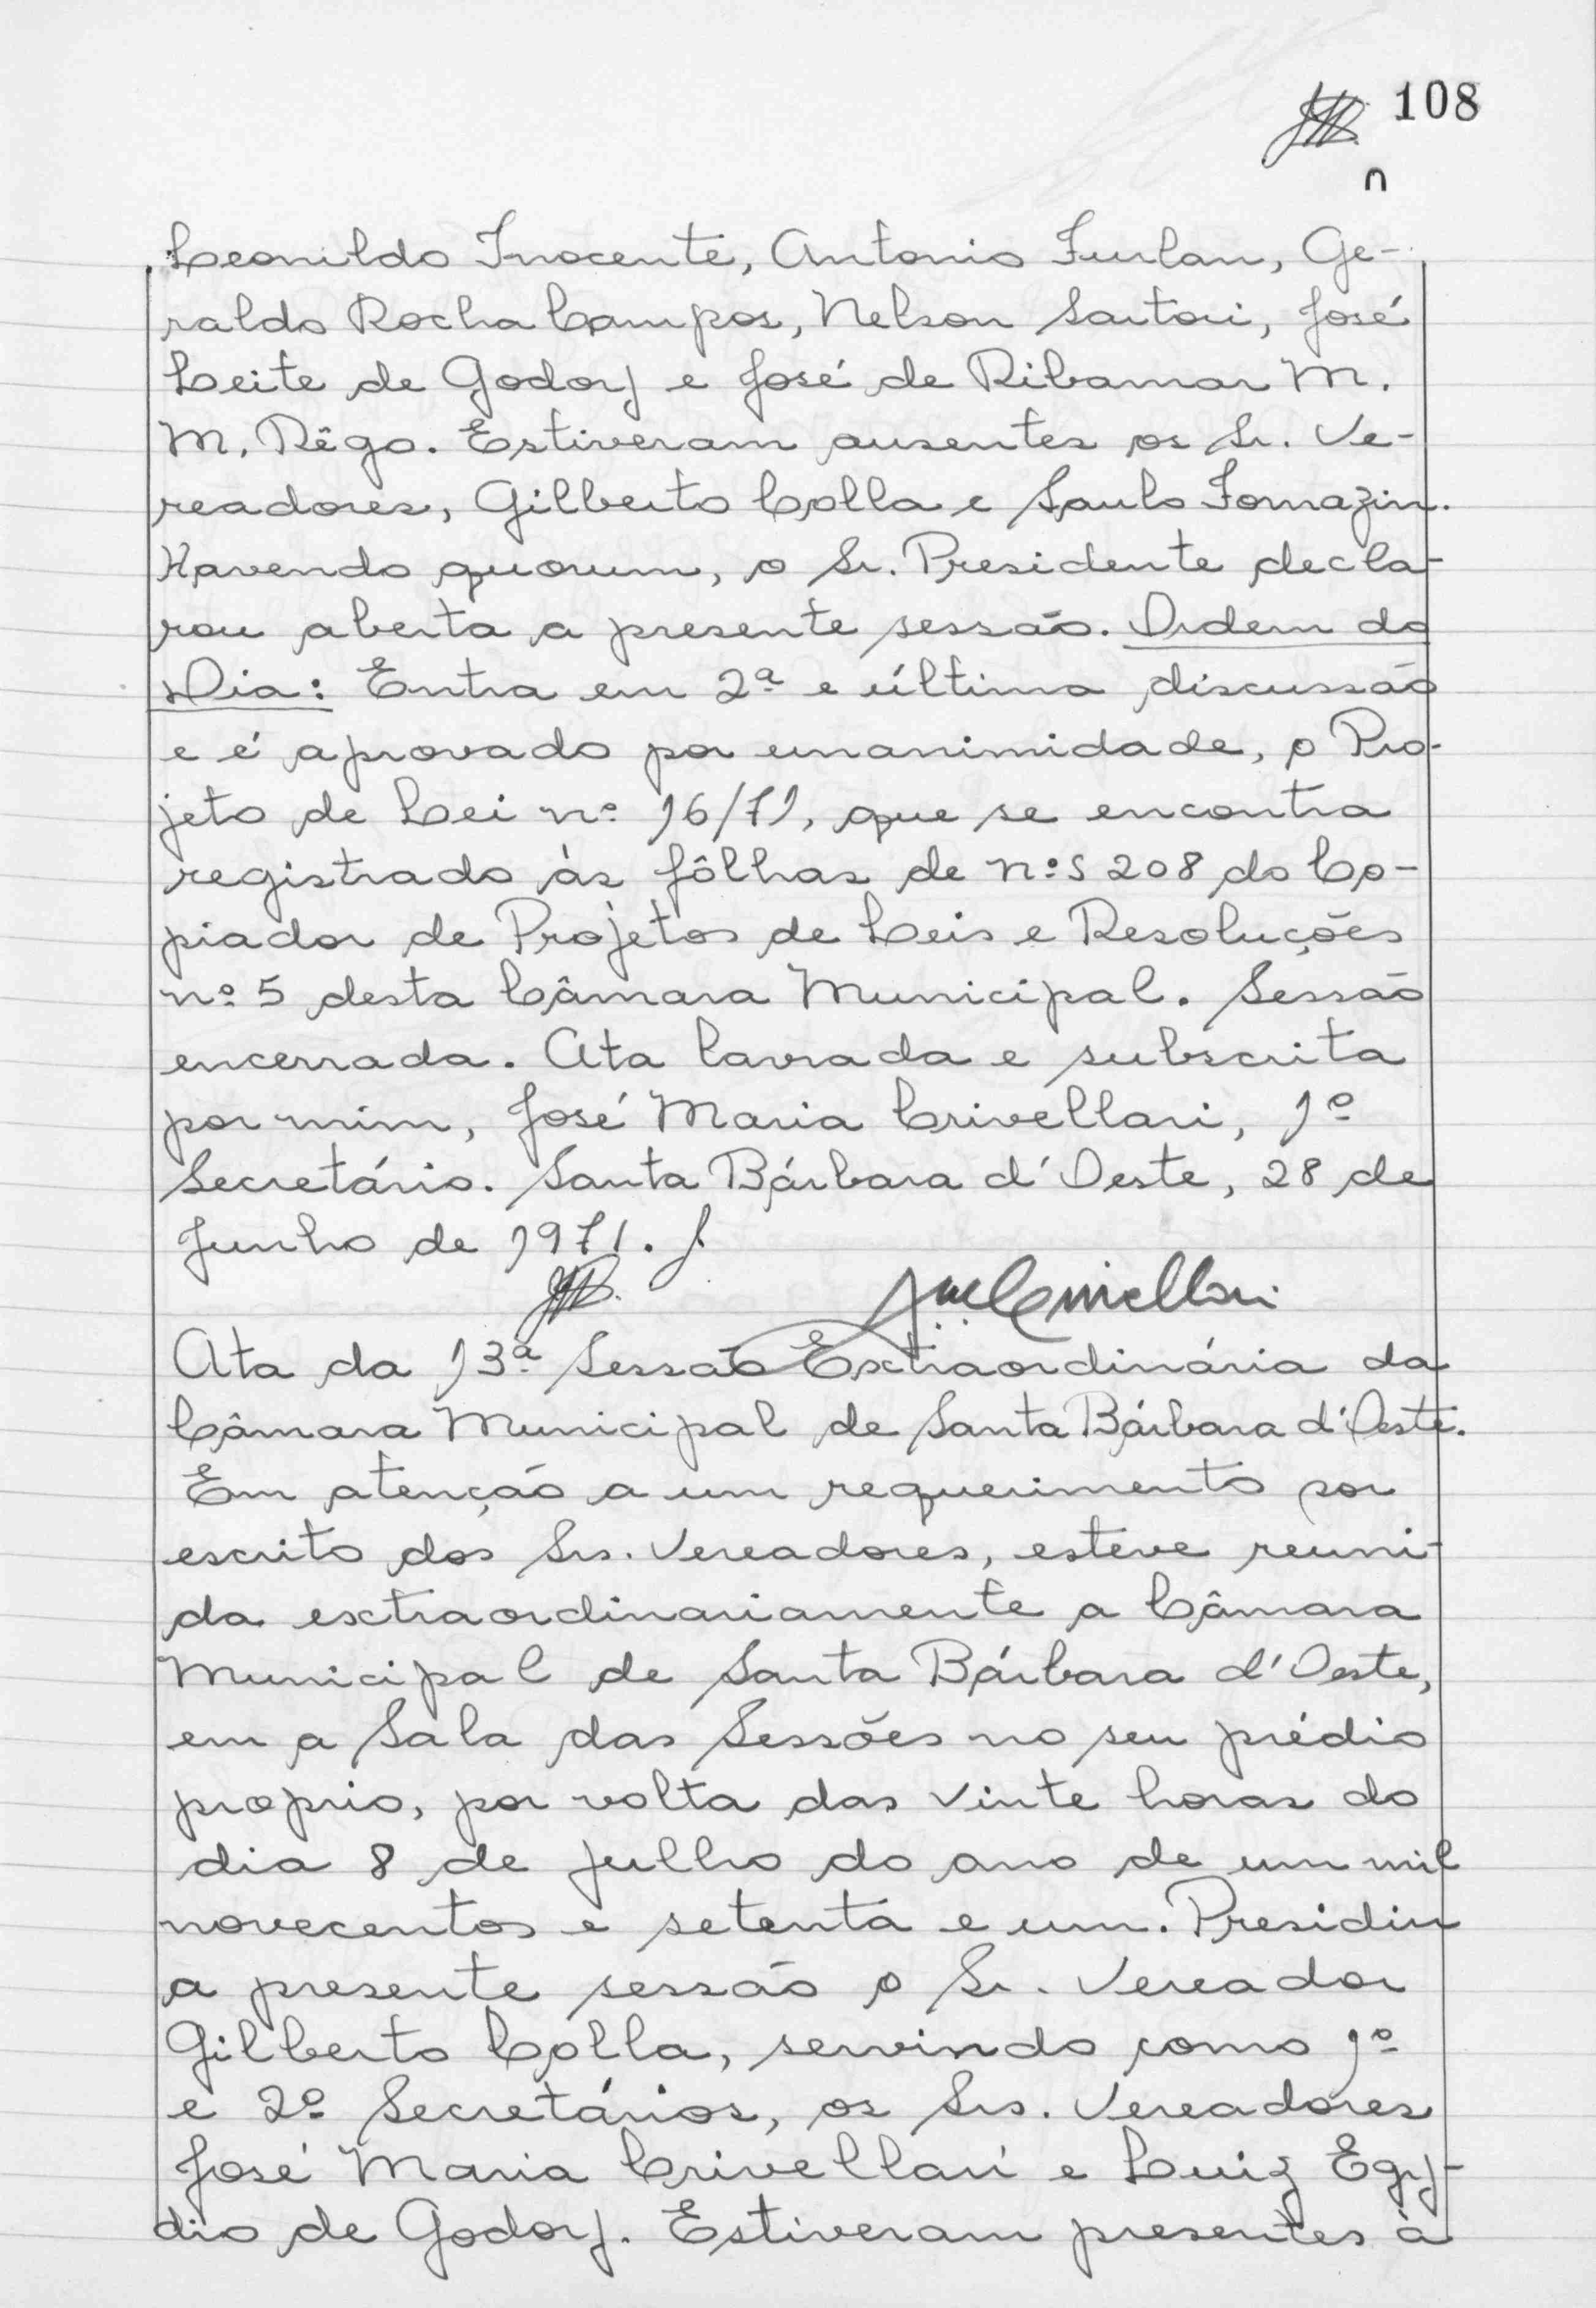 108
n
Leonildo Inocente, Antonio Furlan, Ge-
raldo Rocha Campos, Nelson Sartori, José
Leite de Godoy e José de Ribamar M.
M. Rêgo. Estiveram ausentes os Sr. Ve-
readores, Gilberto Colla e Saulo Fornazin.
Havendo quorum, o Sr. Presidente decla-
rou aberta a presente sessão. Ordem do
Dia: Entra em 2ª e última discussão
e é aprovado por unanimidade, o Pro-
jeto de Lei nº 16/71, que se encontra
registrado às fôlhas de nºs 208 do Co-
piador de Projetos de Leis e Resoluções
nº 5 desta Câmara Municipal. Sessão
encerrada. Ata lavrada e subscrita
por mim, José Maria Crivellari, 1º
Secretário. Santa Bárbara d'Oeste, 28 de
Junho de 1971.
Ata da 13ª Sessão Extraordinária da
Câmara Municipal de Santa Bárbara d'Oeste.
Em atenção a um requerimento por
escrito dos Srs. Vereadores, esteve reuni-
da extraordinariamente a Câmara
Municipal de Santa Bárbara d'Oeste,
em a Sala das Sessões no seu prédio
proprio, por volta das vinte horas do
dia 8 de julho do ano de um mil
novecentos e setenta e um. Presidiu
a presente sessão o Sr. Vereador
Gilberto Colla, servindo como 1º
e 2º Secretários, os Srs. Vereadores
José Maria Crivellari e Luiz Egy-
dio de Godoy. Estiveram presentes à